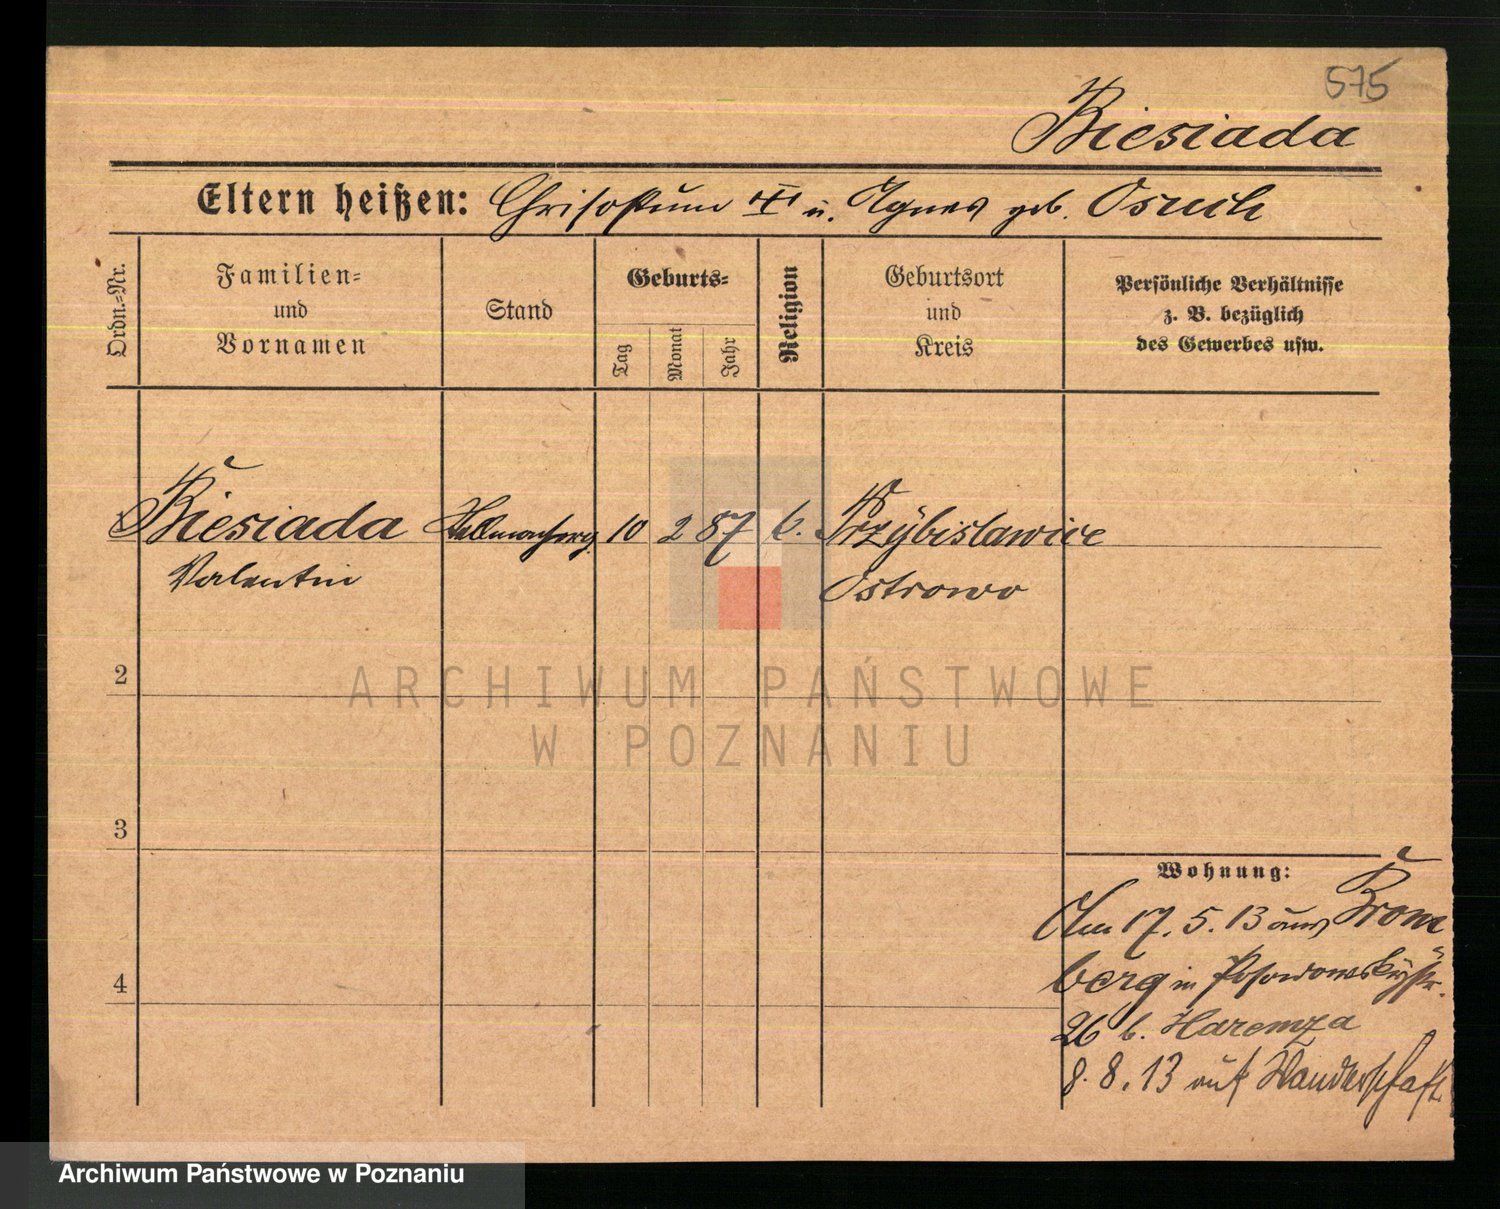 575
Biesiada
Eltern heißen: Chrisostum III u. Agnes geb. Osuch
Ordn.-Nr.
Familien- und Vornamen
Stand
Geburts-
Tag
Monat
Jahr
Religion
Geburtsort und Kreis
Persönliche Verhältnisse z. B. bezüglich des Gewerbes usw.
1 Biesiada 10 2 87 k. Przybislawice
Valentin Ostrowo
2
3
4
Wohnung:
Am 17. 5. 13 aus Krone
berg in
26 b. Haremza
8. 8. 13 auf Wanderschaft
ARCHIWUM PAŃSTWOWE
W POZNANIU
Archiwum Państwowe w Poznaniu